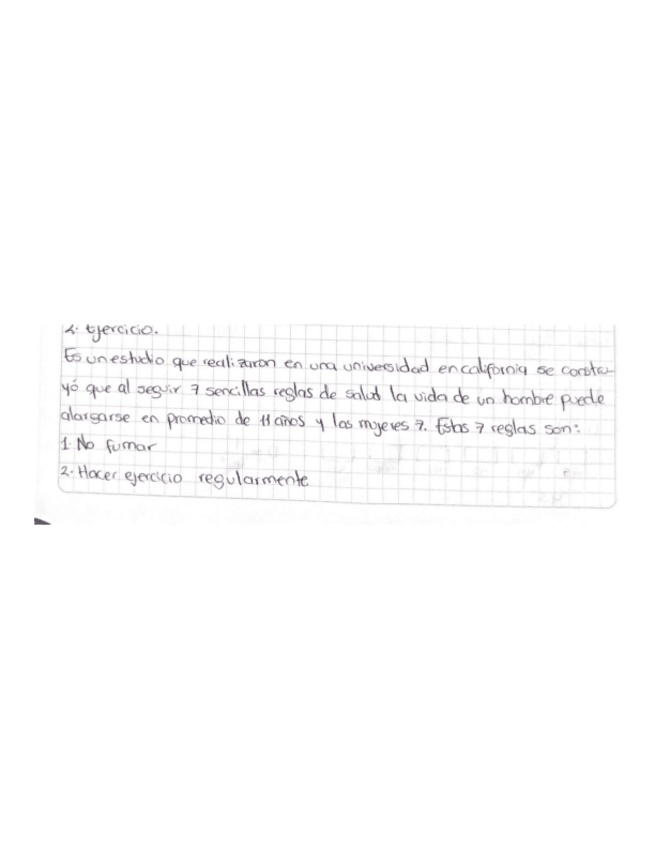 2. Ejercicio.
Es un estudio que realizaron en una universidad en california se constru-
yó que al seguir 7 sencillas reglas de salud la vida de un hombre puede
alargarse en promedio de 11 años y las mujeres 7. Estas 7 reglas son:
1. No fumar
2. Hacer ejercicio regularmente